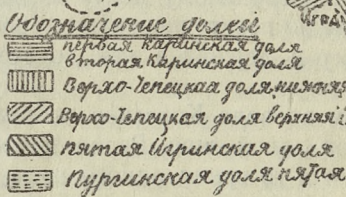 Игра
Обозначение долей
первая каринская доля
вторая Каринская доля
Верхо-Чепецкая доля нижняя
Верхо-Чепецкая доля верхняя
пятая Игринская доля
Пургинская доля пятая